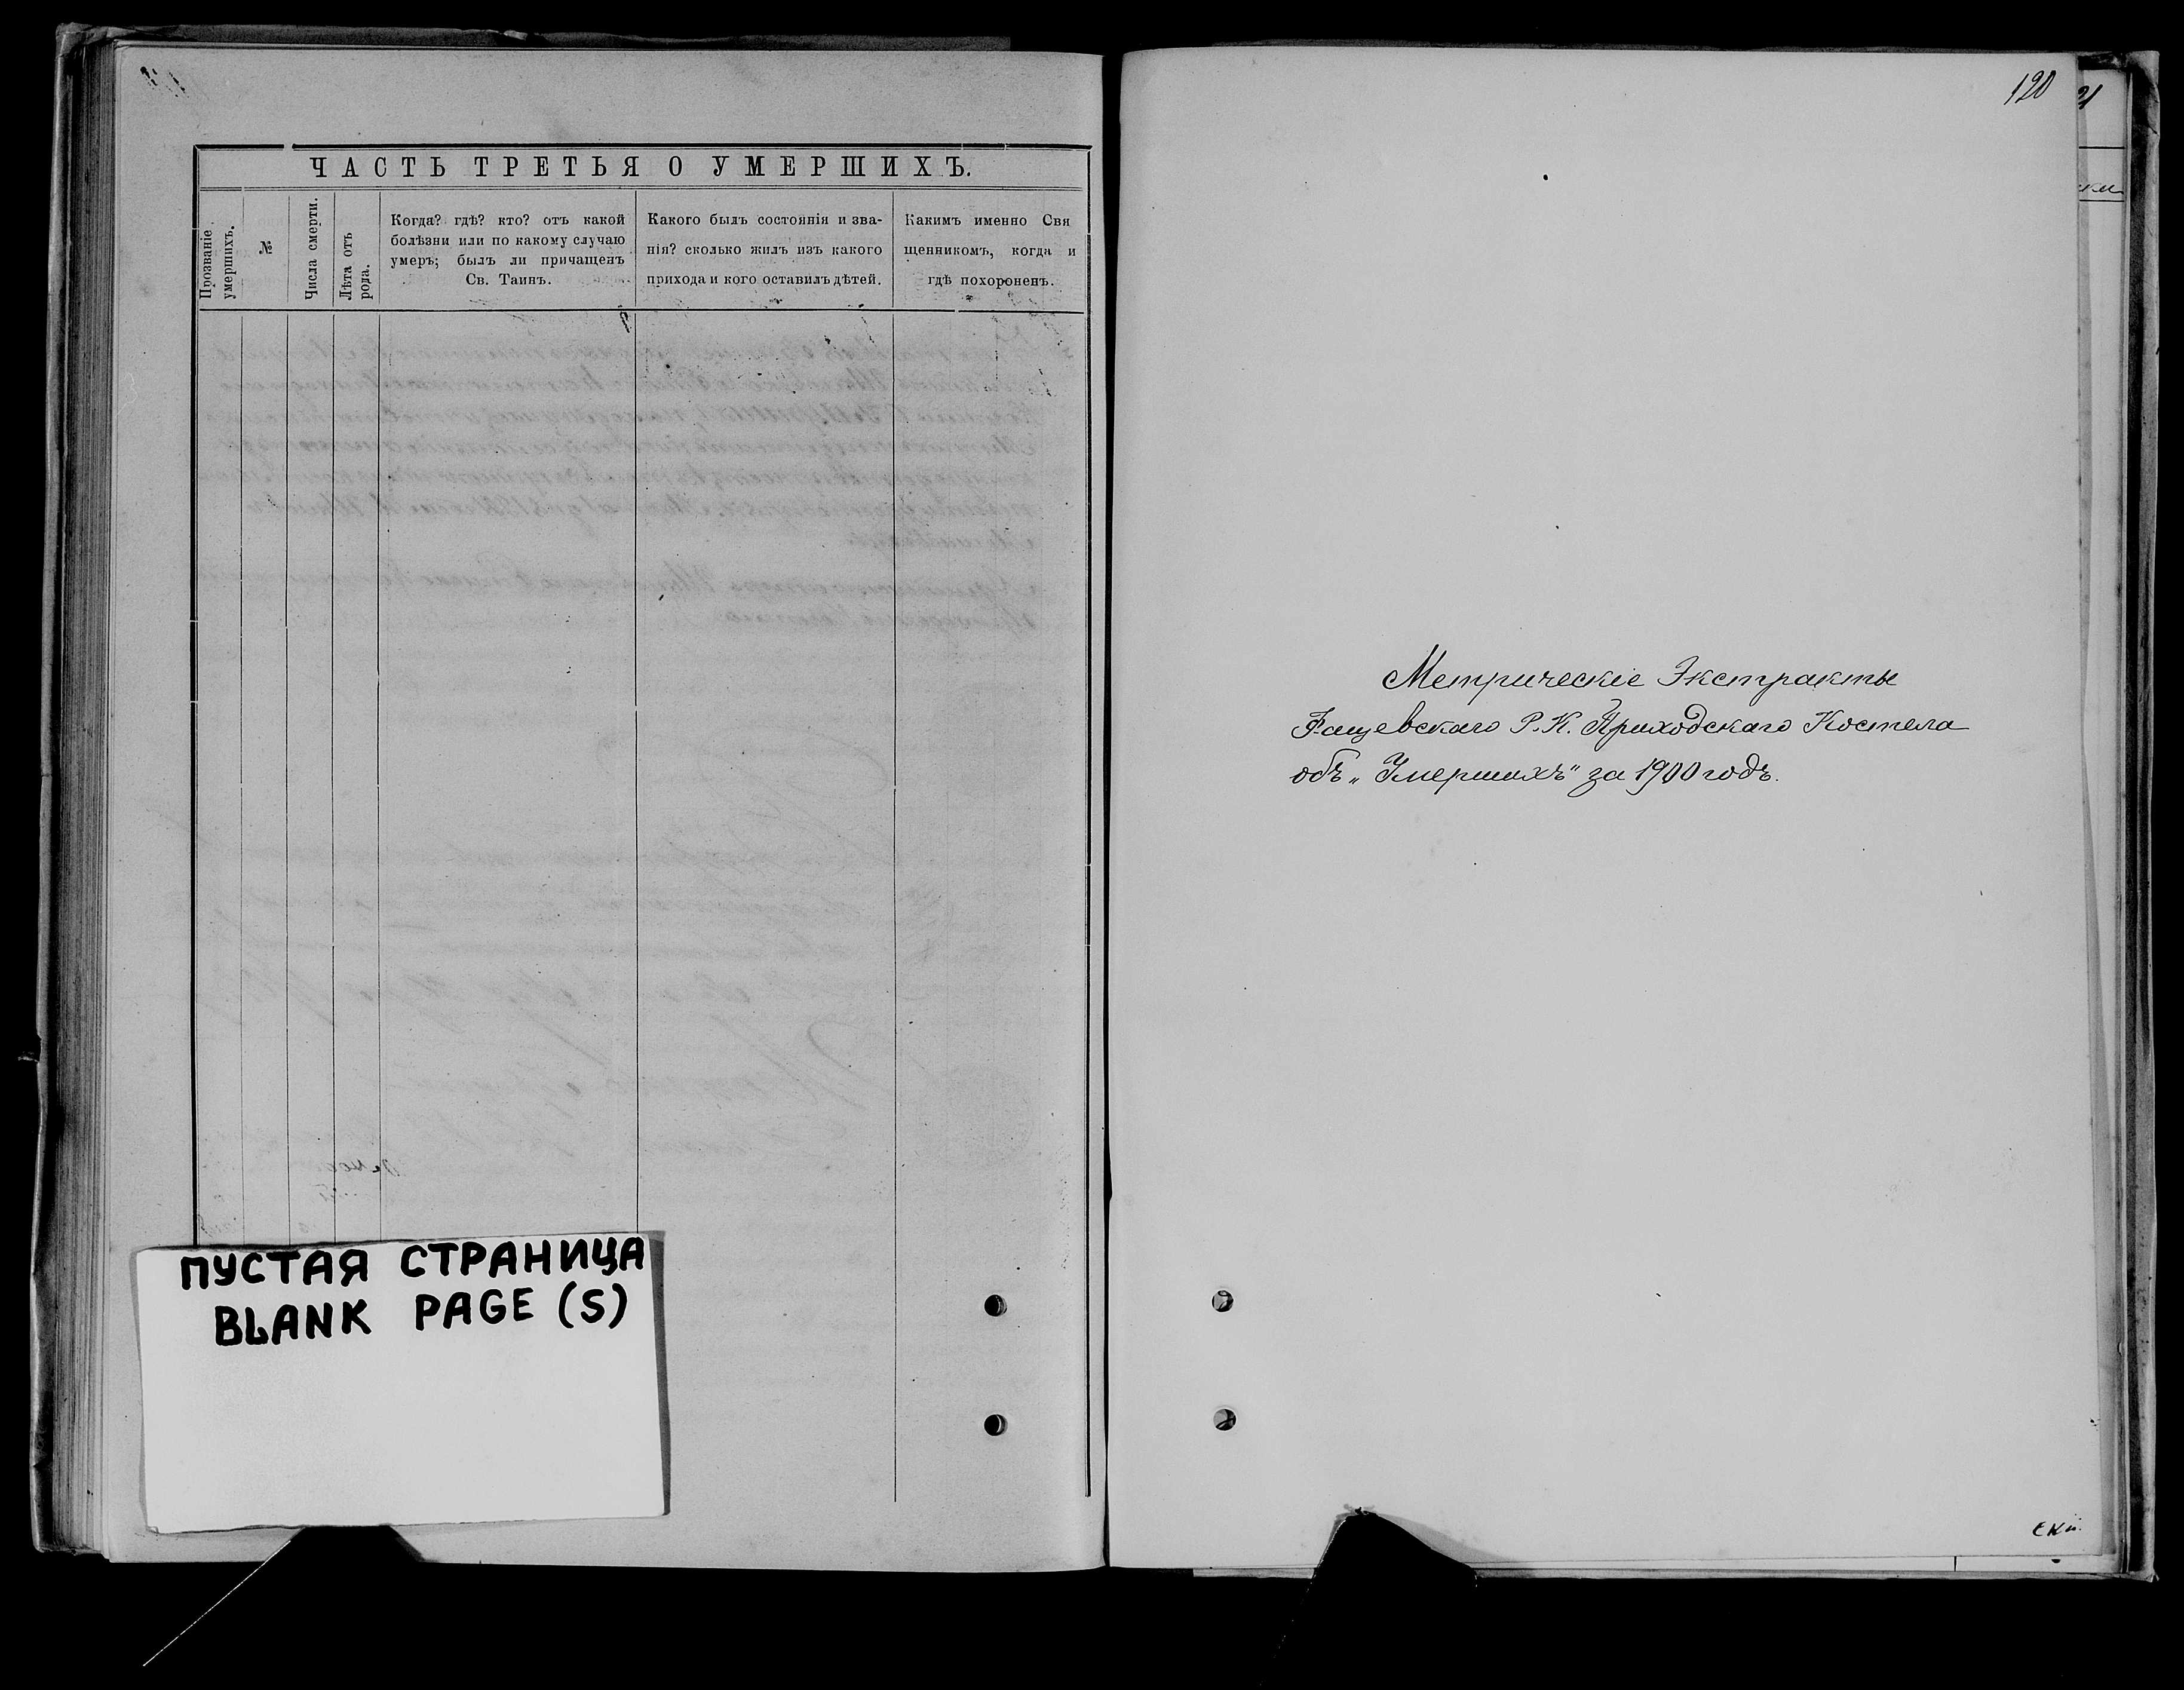 ЧАСТЬ ТРЕТЬЯ О УМЕРШИХЪ.
Прозваніе
умершихъ.
№
Числа смерти.
Лѣта отъ
рода.
Когда? гдѣ? кто? отъ какой
болѣзни или по какому случаю
умеръ; былъ ли причащенъ
Св. Таинъ.
Какого былъ состоянія и зва-
нія? сколько жилъ изъ какого
прихода и кого оставилъ дѣтей.
Какимъ именно Свя
щенникомъ, когда и
гдѣ похороненъ.
ПУСТАЯ СТРАНИЦА
BLANK PAGE (S)
120
Метрическіе Экстракты
Фащевскаго Р. К. Приходскаго Костела
объ „Умершихъ" за 1900 годъ.